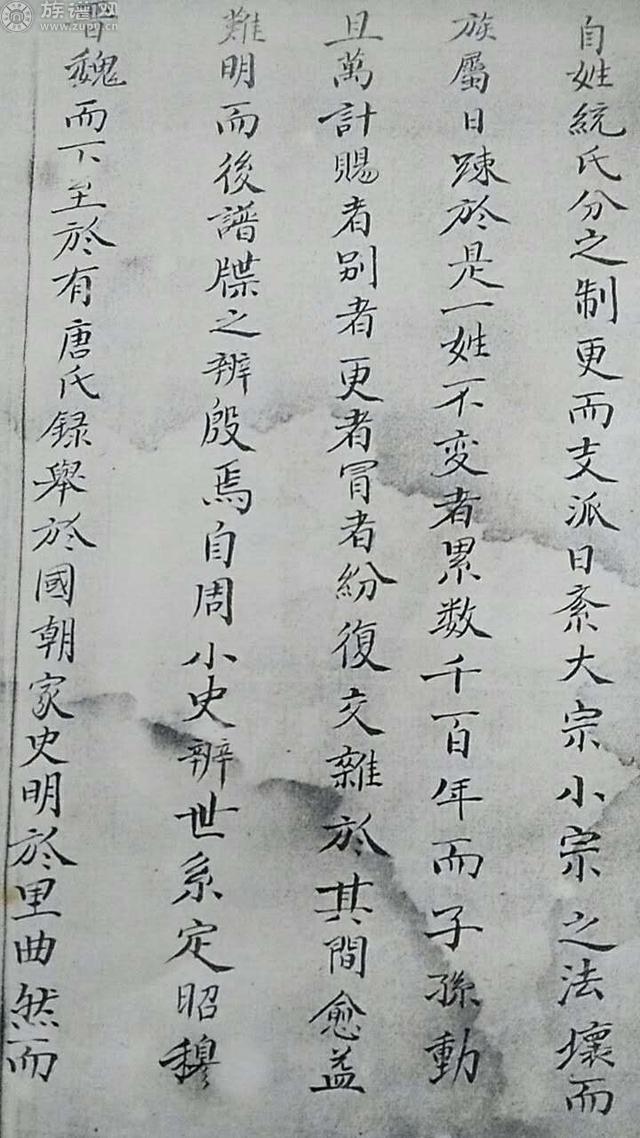 自姓統氏分之制更而支派日紊大宗小宗之法壞而
族屬日踈於是一姓不变者累数千百年而子孫動
且萬計賜者别者更者冐者紛復交雜於其間愈益
難明而後譜牒之辨殷焉自周小史辨世系定昭穆
晋魏而下至於有唐氏録舉於國朝家史明於里曲然而
族谱网
www.zupu.cn